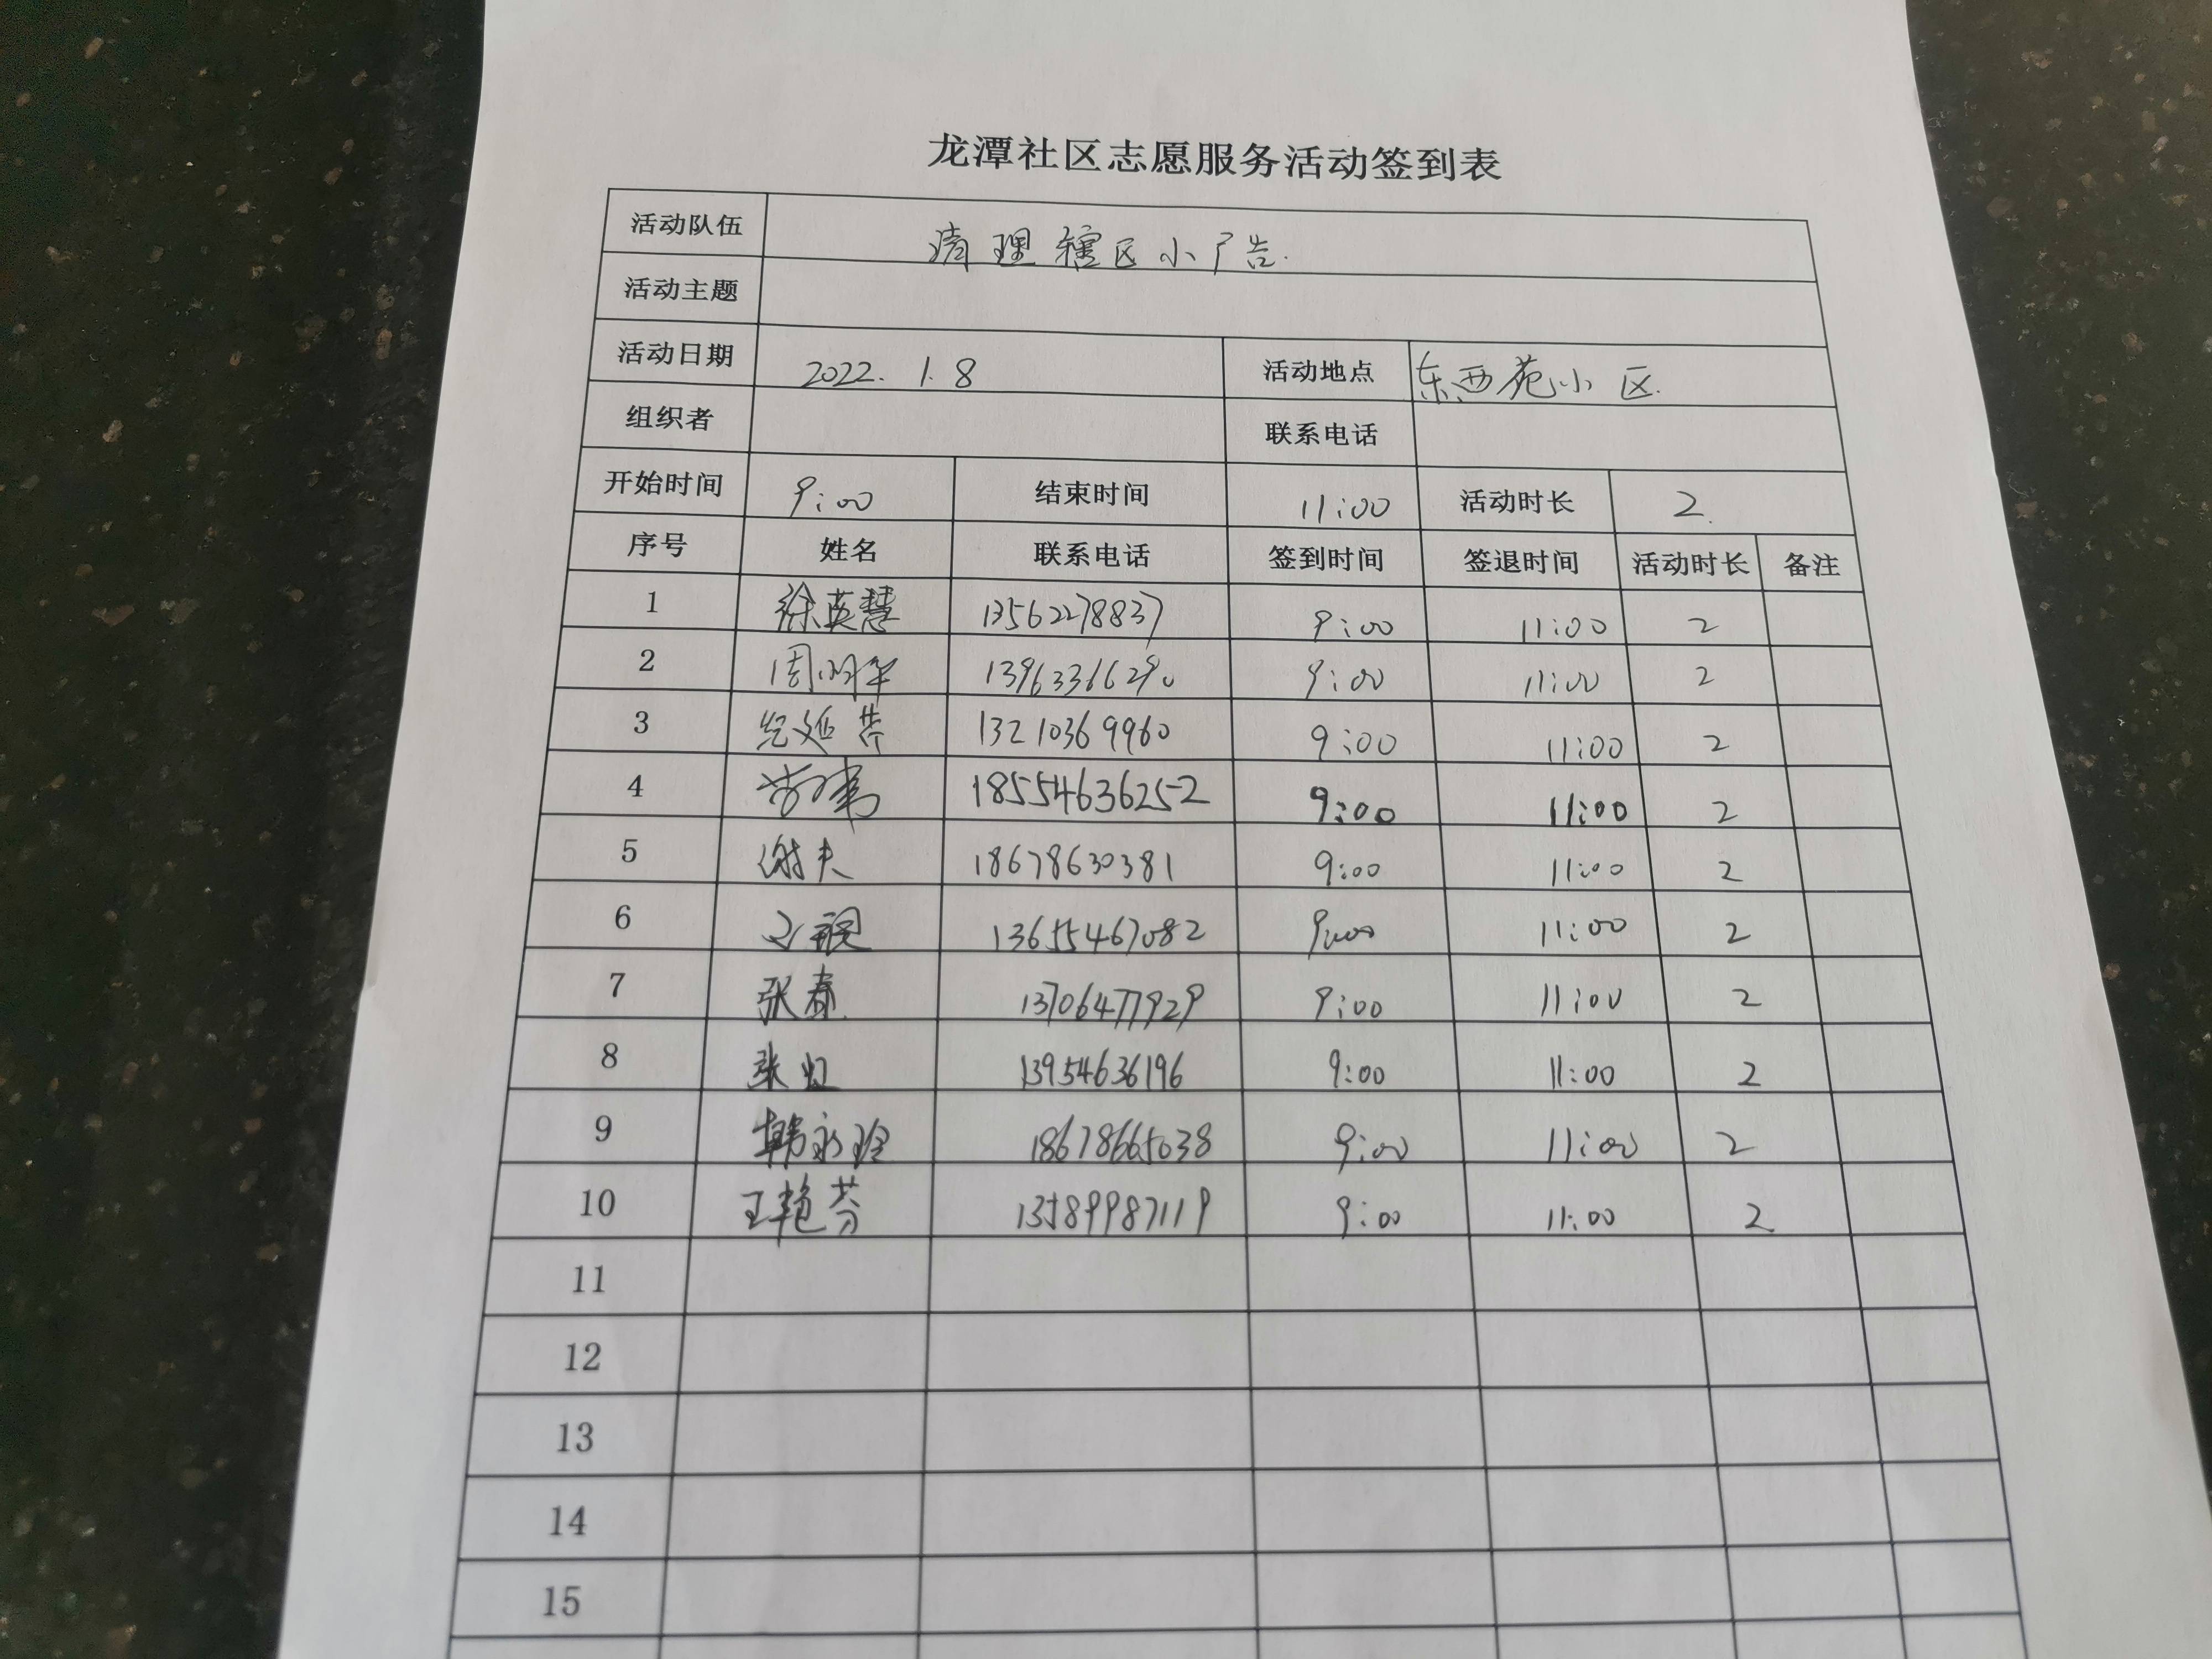 龙潭社区志愿服务活动签到表
活动队伍 清理辖区小广告.
活动主题
活动日期 2022. 1. 8 活动地点 东西苑小区.
组织者 联系电话
开始时间 9:00 结束时间 11:00 活动时长 2.
序号 姓名 联系电话 签到时间 签退时间 活动时长 备注
1 徐英慧 13562278837 9:00 11:00 2
2 周 13963366290 9:00 11:00 2
3 13210369960 9:00 11:00 2
4 18554636252 9:00 11:00 2
5 谢夫 18678630381 9:00 11:00 2
6 13655467082 9:00 11:00 2
7 张春 13706477929 9:00 11:00 2
8 张虹 13954636196 9:00 11:00 2
9 韩永玲 18678665038 9:00 11:00 2
10 王艳芬 13589987119 9:00 11:00 2
11
12
13
14
15